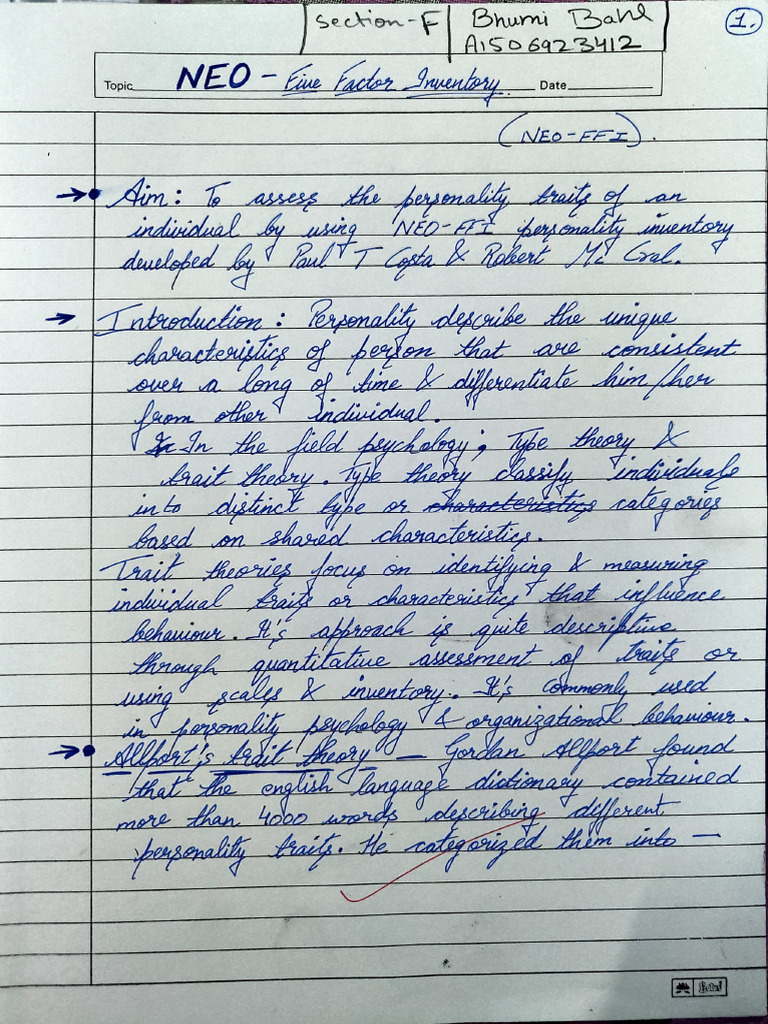 Section-F Bhumi Bahl 1.
A1506923412
Topic NEO - Five Factor Inventory Date
(NEO-FFI).
Aim: To assess the personality traits of an
individual by using NEO-FFI personality inventory
developed by Paul T Costa & Robert Mc Cral.
Introduction: Personality describe the unique
characteristics of person that are consistent
over a long of time & differentiate him/her
from other individual.
In In the field psychology; Type theory &
trait theory. Type theory classify individuals
into distinct type or characteristics categories
based on shared characteristics.
Trait theories focus on identifying & measuring
individual traits or characteristics that influence
behaviour. It's approach is quite descriptive
through quantitative assessment of traits or
using scales & inventory. It's commonly used
in personality psychology & organizational behaviour.
Allport's trait theory — Gordan Allport found
that the english language dictionary contained
more than 4000 words describing different
personality traits. He categorized them into —